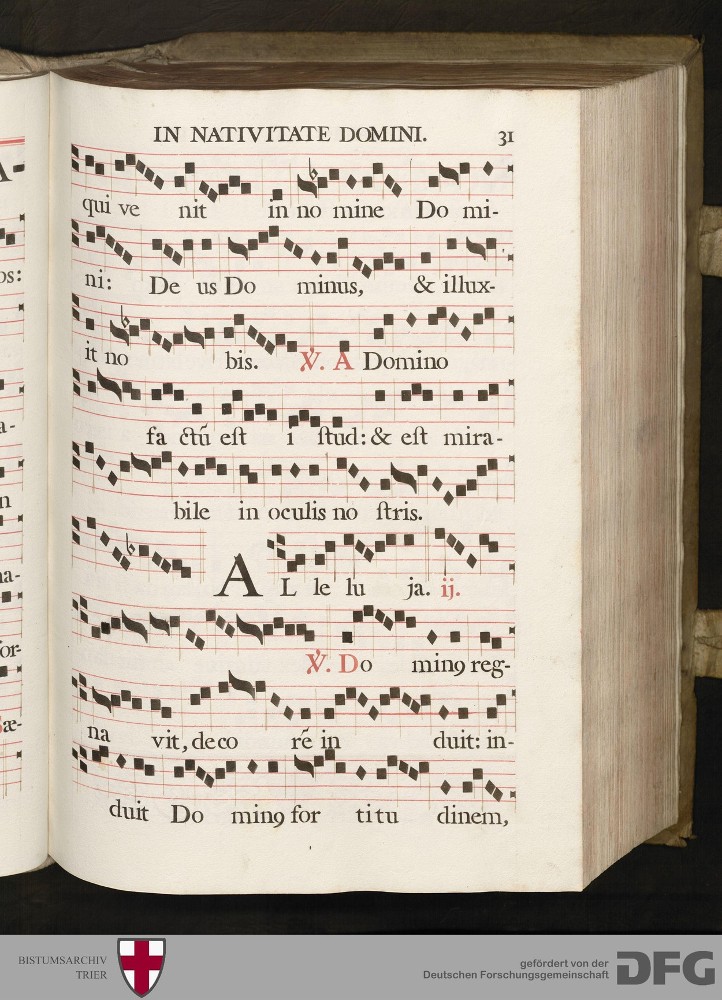 IN NATIVITATE DOMINI. 31
qui ve nit in no mine Do mi-
ni: De us Do minus, & illux-
it no bis. ℣. A Domino
fa ctũ est i stud: & est mira-
bile in oculis no stris.
AL le lu ja. ij.
℣. Do minꝰ reg-
na vit, deco rẽ in duit: in-
duit Do minꝰ for titu dinem,
os:
a-
n
na-
for-
æ-
BISTUMSARCHIV
TRIER
gefördert von der
Deutschen Forschungsgemeinschaft
DFG